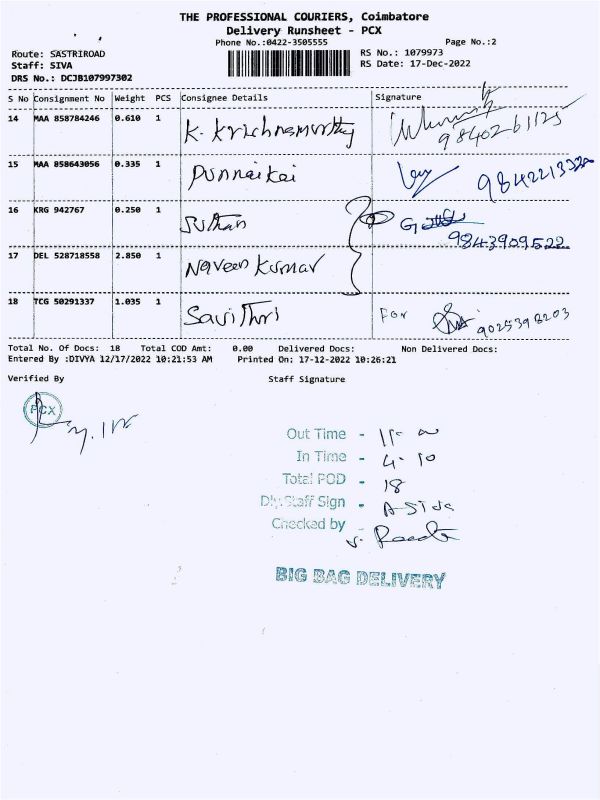 THE PROFESSIONAL COURIERS, Coimbatore
Delivery Runsheet - PCX
Phone No.:0422-3505555 Page No.:2
Route: SASTRIROAD RS No.: 1079973
Staff: SIVA RS Date: 17-Dec-2022
DRS No.: DCJB107997302
S No Consignment No Weight PCS Consignee Details Signature
14 MAA 858784246 0.610 1 K. Krishnamurthy
9840261125
15 MAA 858643056 0.335 1 Punnaikai
16 KRG 942767 0.250 1 Suthan
9843909522
17 DEL 528718558 2.850 1 Naveen Kumar
18 TCG 50291337 1.035 1 Savithri For 9025398203
Total No. Of Docs: 18 Total COD Amt: 0.00 Delivered Docs: Non Delivered Docs:
Entered By :DIVYA 12/17/2022 10:21:53 AM Printed On: 17-12-2022 10:26:21
Verified By Staff Signature
PCX
Out Time - 11-00
In Time - 4-10
Total POD - 18
Dly.Staff Sign - A-Siva
Checked by
BIG BAG DELIVERY